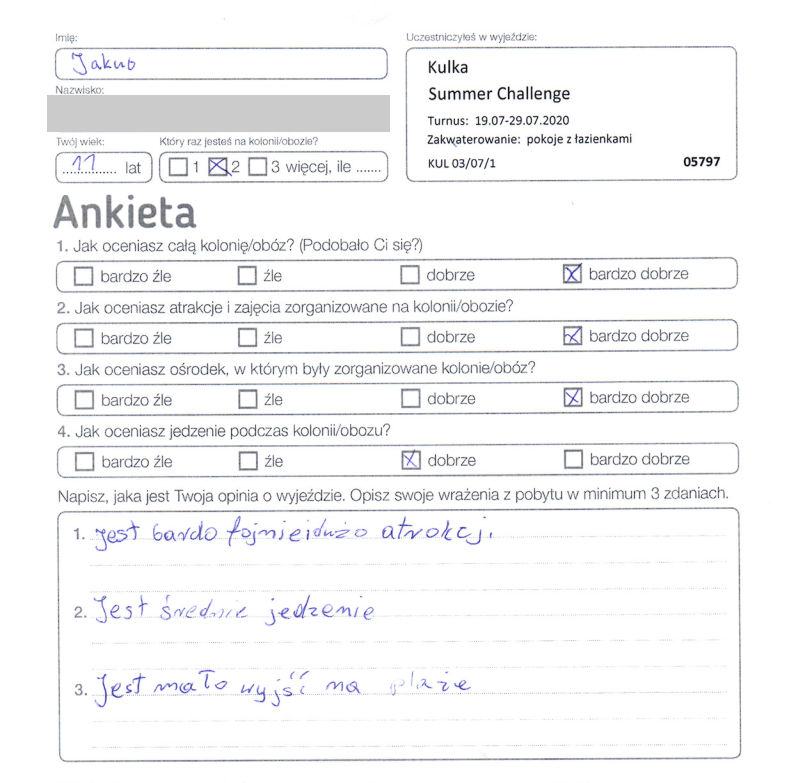 Imię:
Jakub
Uczestniczyłeś w wyjeździe:
Kulka
Summer Challenge
Turnus: 19.07-29.07.2020
Zakwaterowanie: pokoje z łazienkami
KUL 03/07/1 05797
Nazwisko:
Twój wiek:
11 lat
Który raz jesteś na kolonii/obozie?
1 2 3 więcej, ile .......
Ankieta
1. Jak oceniasz całą kolonię/obóz? (Podobało Ci się?)
bardzo źle źle dobrze bardzo dobrze
2. Jak oceniasz atrakcje i zajęcia zorganizowane na kolonii/obozie?
bardzo źle źle dobrze bardzo dobrze
3. Jak oceniasz ośrodek, w którym były zorganizowane kolonie/obóz?
bardzo źle źle dobrze bardzo dobrze
4. Jak oceniasz jedzenie podczas kolonii/obozu?
bardzo źle źle dobrze bardzo dobrze
Napisz, jaka jest Twoja opinia o wyjeździe. Opisz swoje wrażenia z pobytu w minimum 3 zdaniach.
1. Jest bardo fojnie i dużo atrokcji.
2. Jest średnie jedzenie
3. Jest mało wyjść na plaże